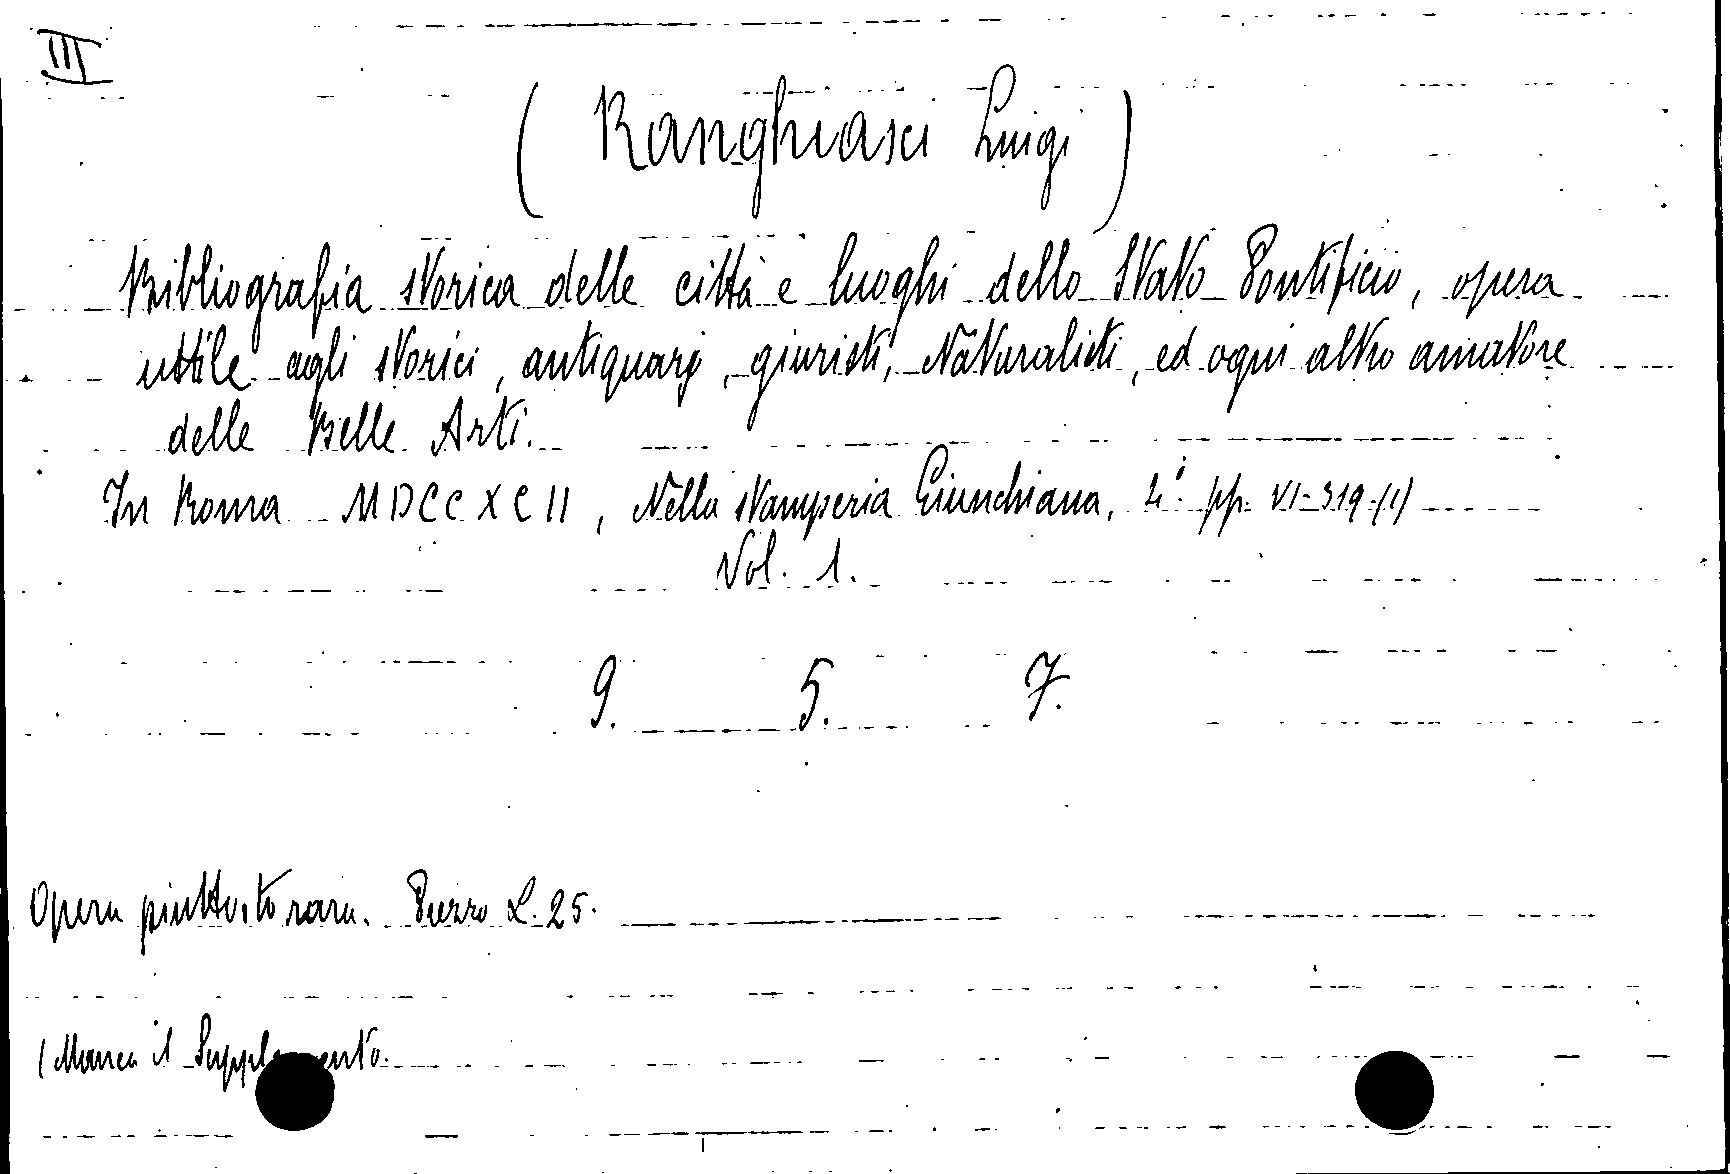 III
( Ranghiasci Luigi )
Bibliografia storica delle città e luoghi dello Stato Pontificio, opera
uttile agli storici, antiquarj, giuristi, Naturalisti, ed ogni altro amatore
delle Belle Arti.
In Roma MDCCXCII, Nella stamperia Giunchiana, 4° pp. VI-319-(1)
Vol. 1.
9. 5. 7.
Opera piuttosto rara. Prezzo L. 25.
(Manca il Supplemento.